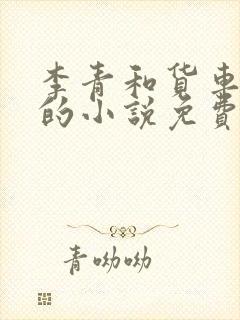 李青和货车
的小说免费
青呦呦